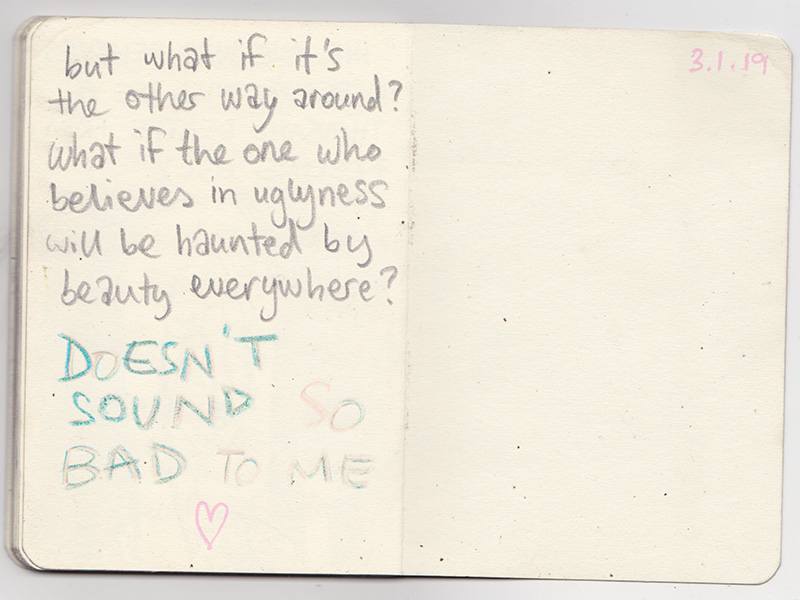 but what if it's
the other way around?
what if the one who
believes in uglyness
will be haunted by
beauty everywhere?
DOESN'T
SOUND SO
BAD TO ME
3.1.19